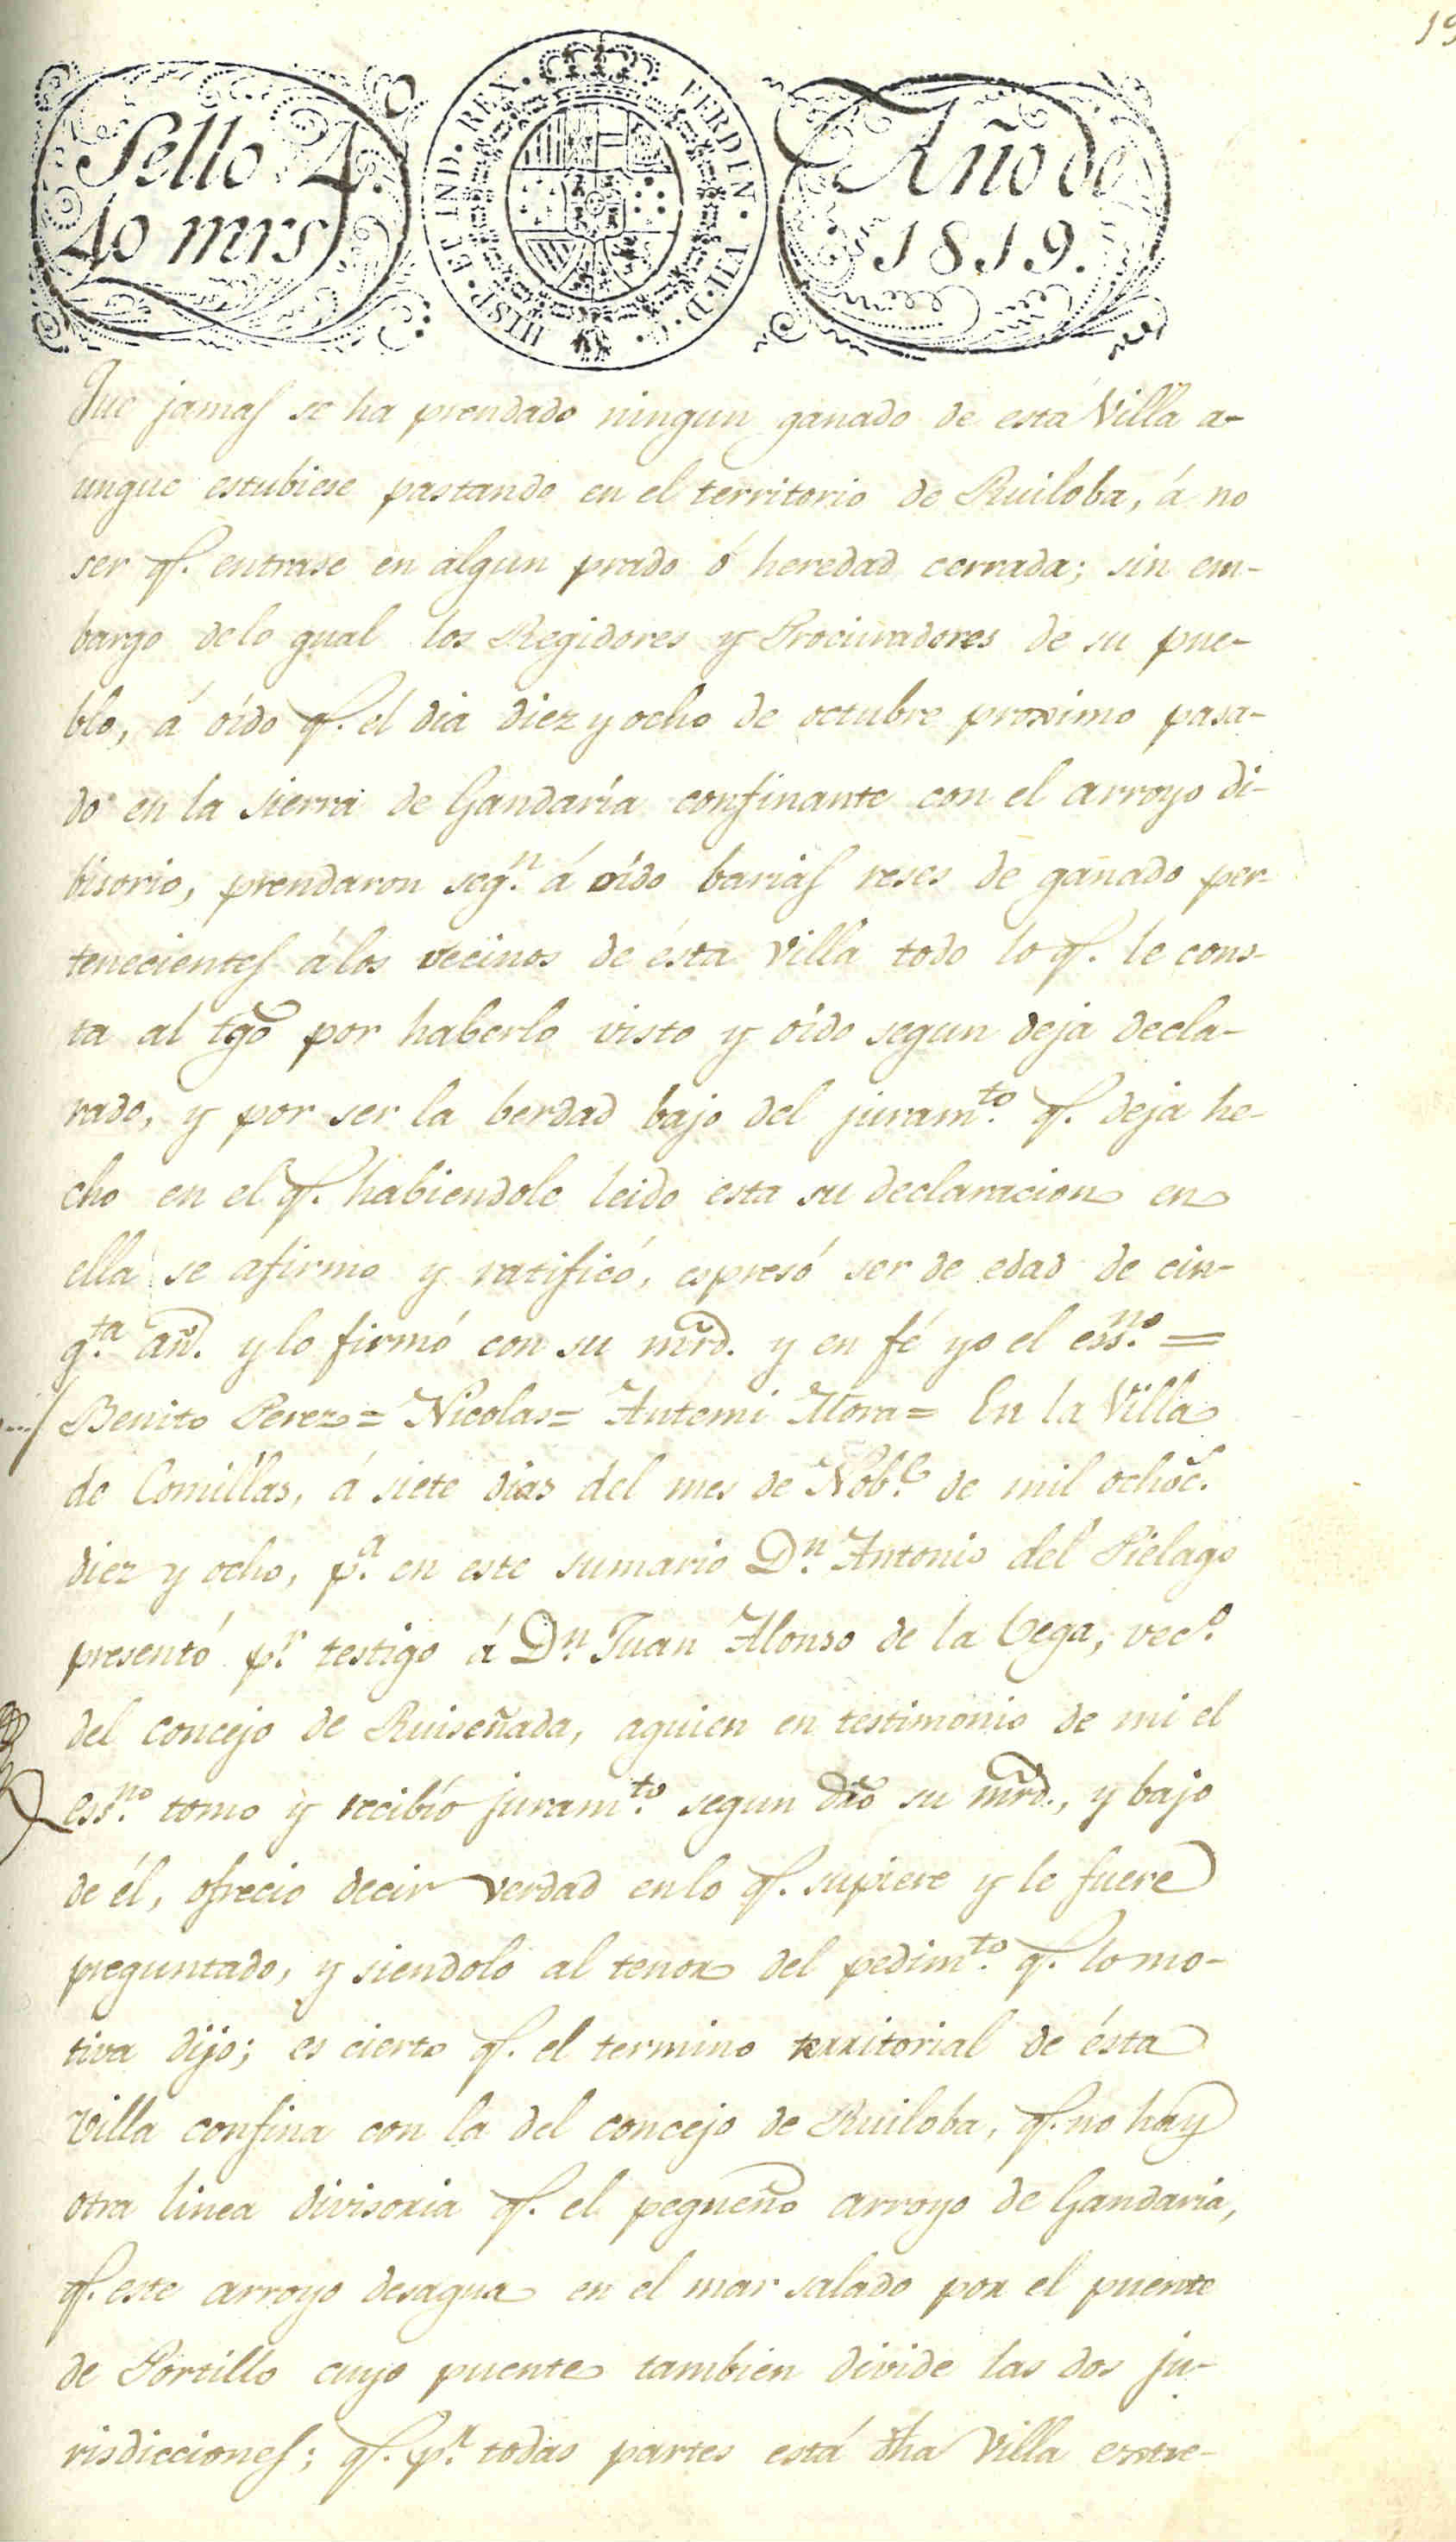 19
Sello 4.º
40 mrs
HISP. ET IND. REX. FERDIN. VII. D. G.
Año de
1819.
Que jamas se ha prendado ningun ganado de esta Villa a-
unque estubiese pastando en el territorio de Ruiloba, á no
ser q. entrase en algun prado ó heredad cerrada; sin em-
bargo delo qual los Regidores y Procuradores de su pue-
blo, á oído q. el dia diez y ocho de octubre proximo pasa-
do en la sierra de Gandaría confinante con el arroyo di-
bisorio, prendaron seg.n á oído barias reses de ganado per-
tenecientes á los vecinos de ésta Villa todo lo q. le cons-
ta al tgõ por haberlo visto y oído segun deja decla-
rado, y por ser la berdad bajo del juram.to q. deja he-
cho en el q. habiendole leido esta su declaracion en
ella se afirmo y ratificó, espresó ser de edad de cin-
q.ta añ. y lo firmó con su mrd. y en fé yo el ess.no =
Benito Perez = Nicolas = Antemi Mora = En la Villa
de Comillas, á siete dias del mes de Nob.e de mil ochoc.
diez y ocho, p.a en este sumario D.n Antonio del Pielago
presentó p.r testigo á D.n Juan Alonso de la Vega, vec.o
del concejo de Ruiseñada, aquien en testimonio de mi el
ess.no tomo y recibío juram.to segun dro su mrd., y bajo
de él, ofrecio decir verdad enlo q. supiere y le fuere
preguntado, y siendolo al tenor del pedim.to q. lo mo-
tiva dijo; es cierto q. el termino territorial de ésta
Villa confina con la del concejo de Ruiloba, q. no hay
otra linea divisoria q. el pequeño arroyo de Gandaria,
q. este arroyo desagua en el mar salado por el puente
de Portillo cuyo puente tambien divide las dos ju-
risdicciones; q. p.r todas partes está dha Villa entre-